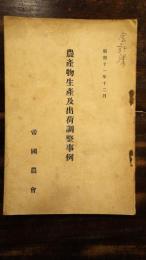 昭和十一年十二月
農產物生產及出荷調整事例
帝國農會